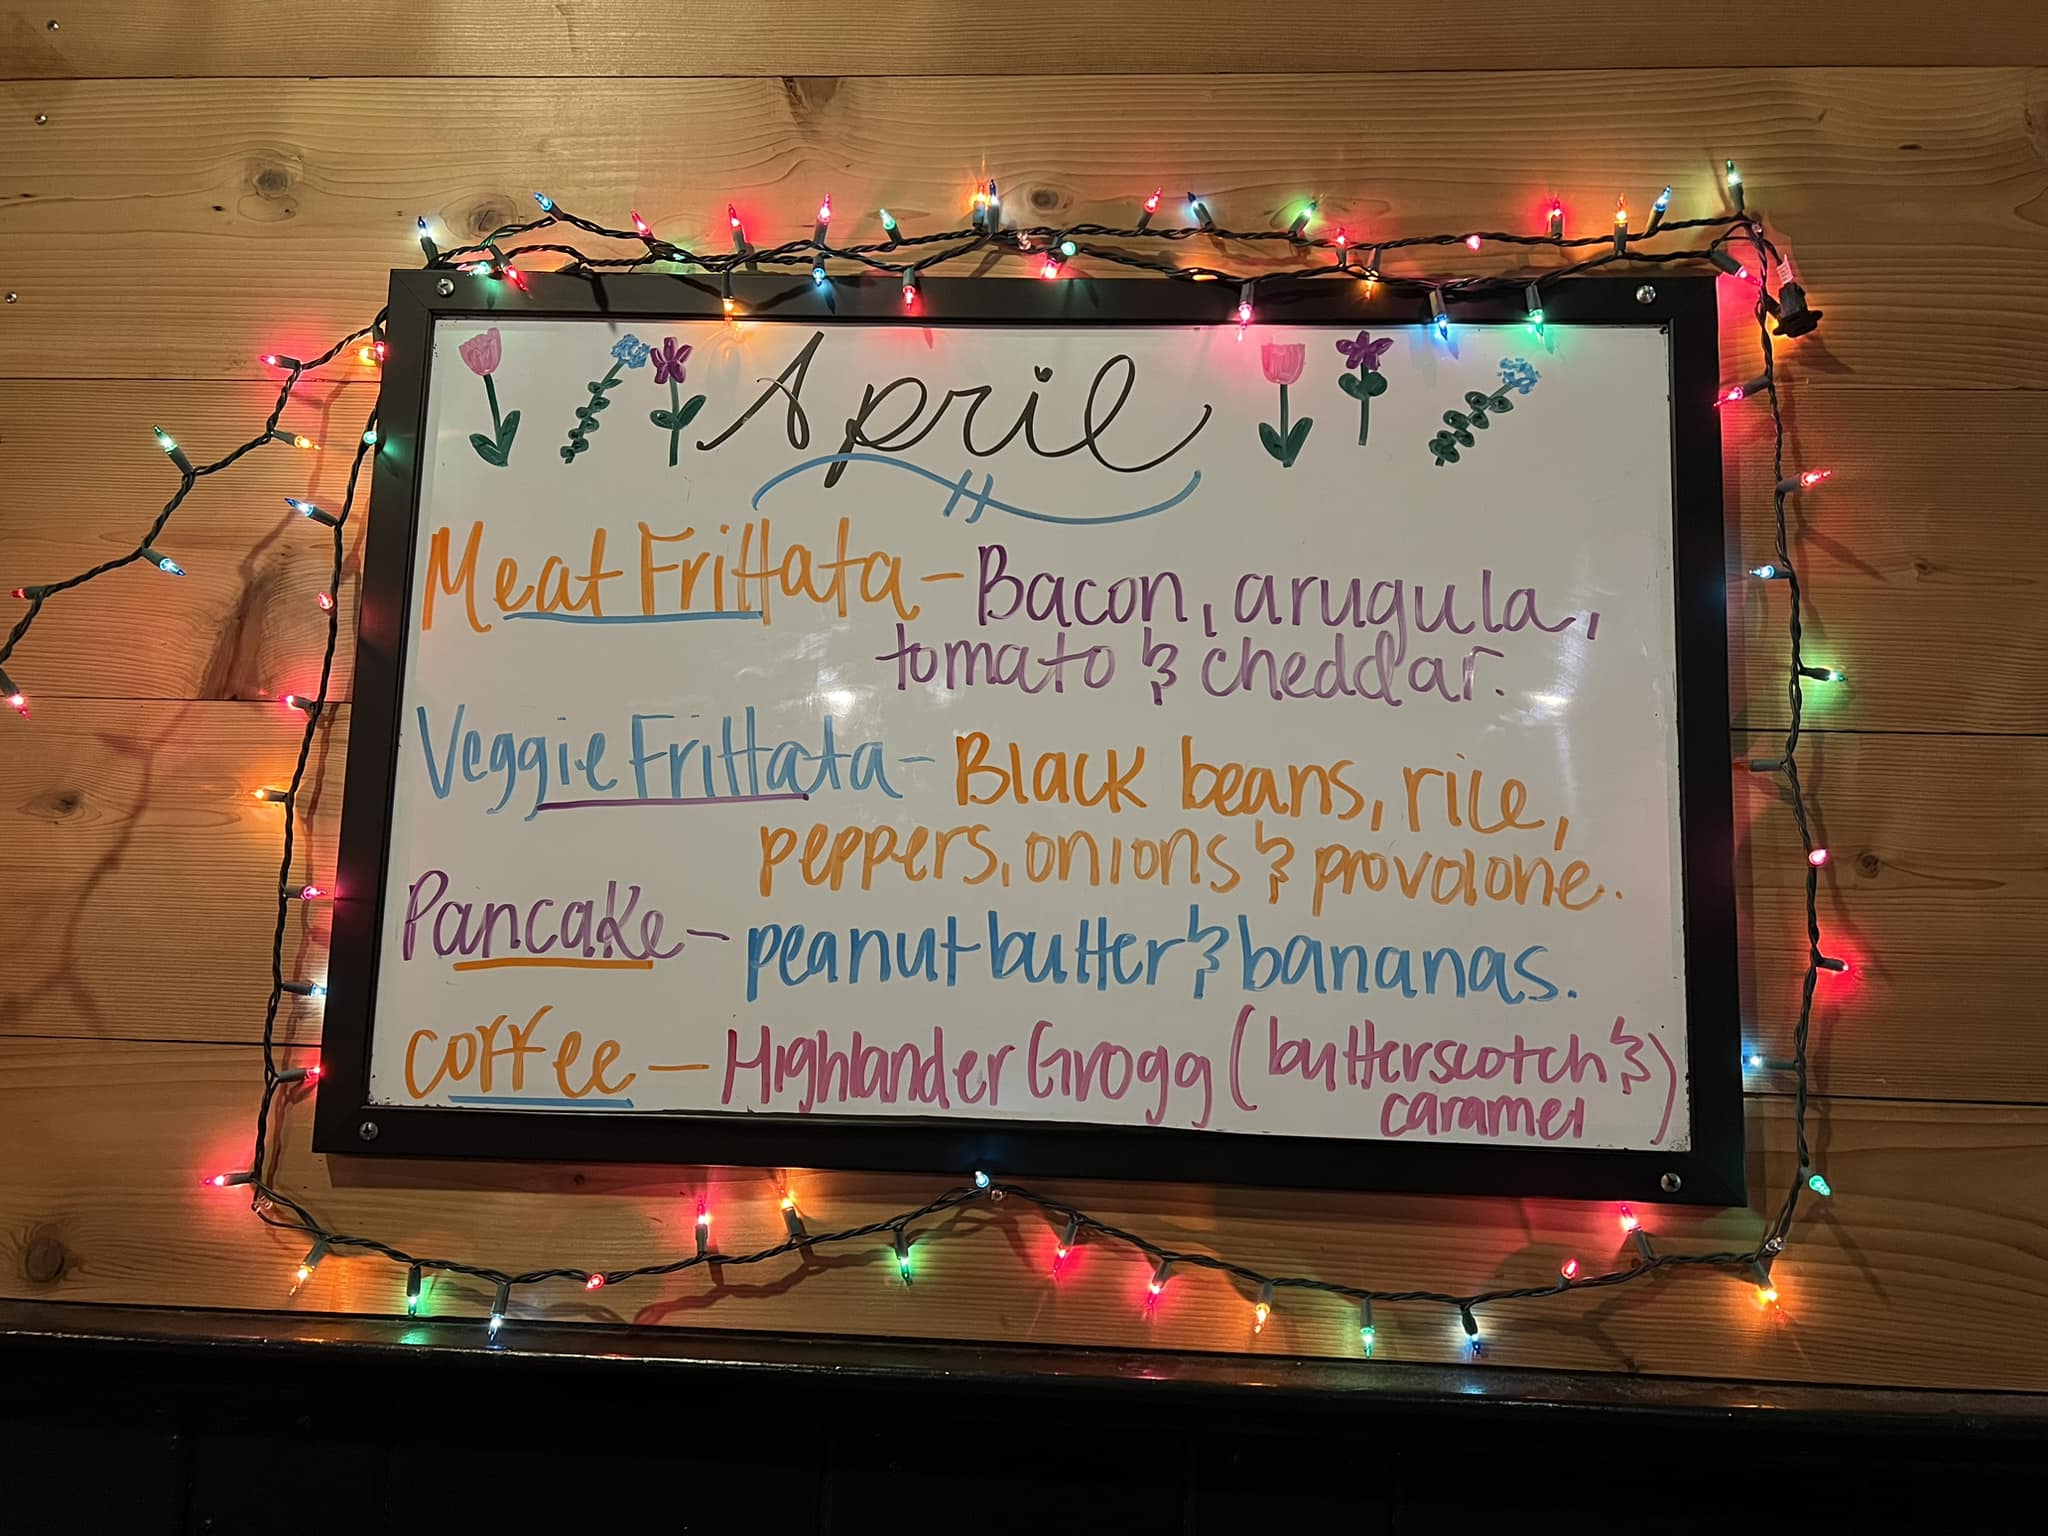 April
Meat Frittata - Bacon, arugula,
tomato & cheddar.
Veggie Frittata - Black beans, rice,
peppers, onions & provolone.
Pancake - peanut butter & bananas.
coffee - Highlander Grogg (butterscotch &
caramel)